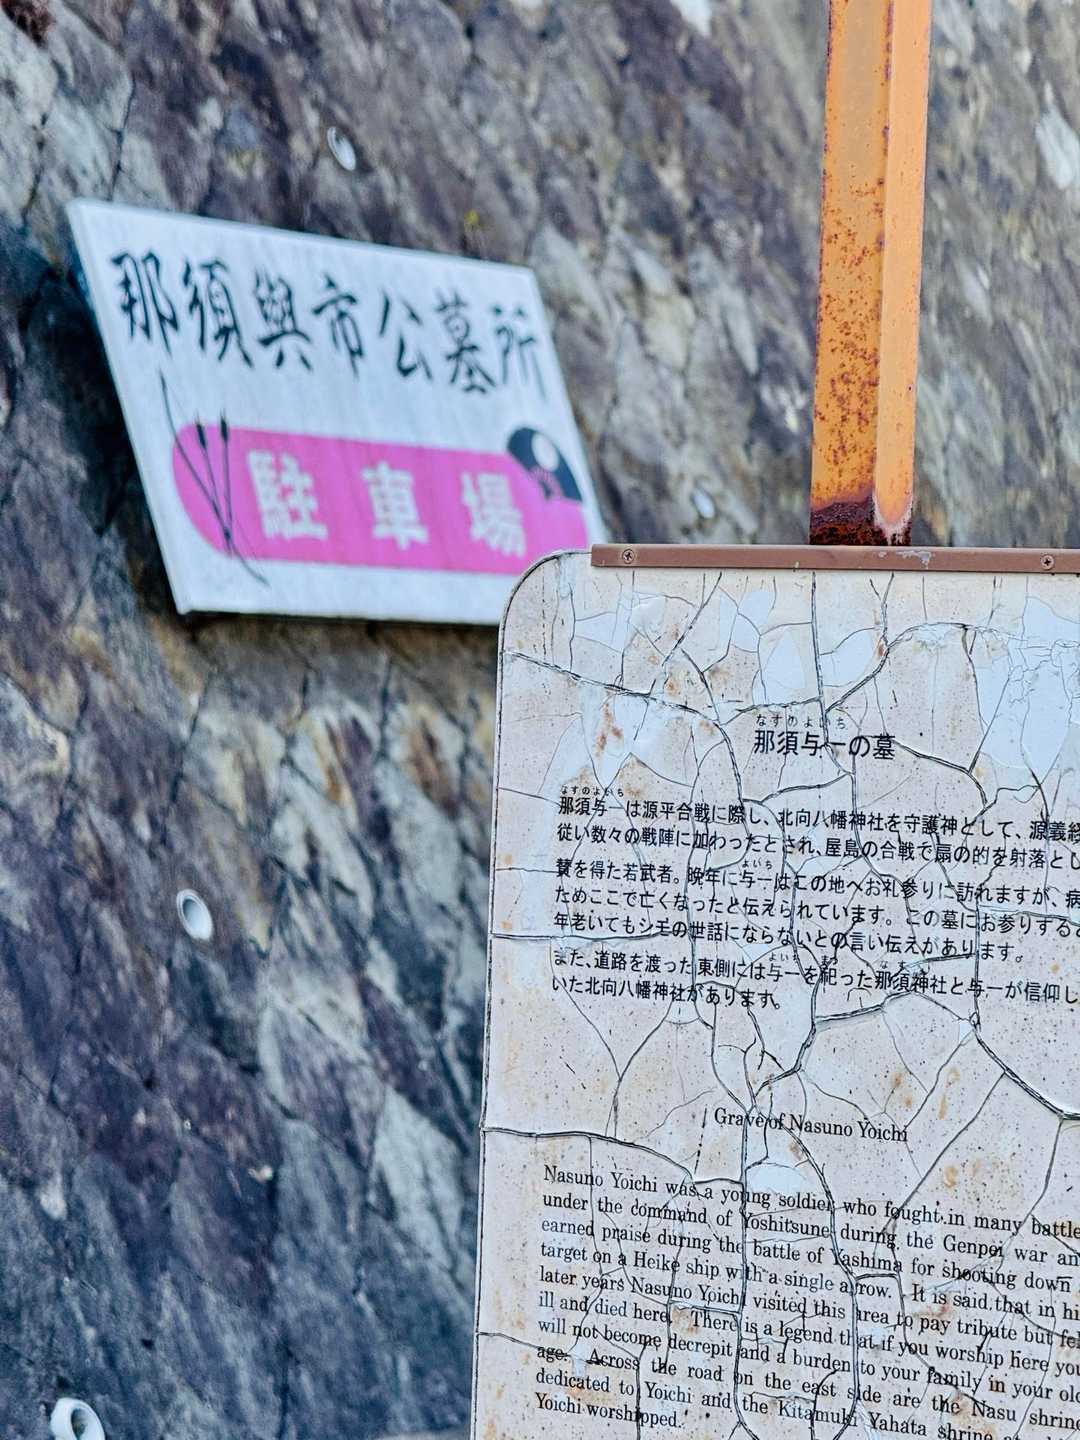 那須與市公墓所
駐車場
なすのよいち
那須与一の墓
なすのよいち
那須与一は源平合戦に際し、北向八幡神社を守護神として、源義経
従い数々の戦陣に加わったとされ、屋島の合戦で扇の的を射落とし
よいち
賛を得た若武者。晩年に与一はこの地へお礼参りに訪れますが、病
ためここで亡くなったと伝えられています。この墓にお参りすると
年老いてもシモの世話にならないとの言い伝えがあります。
よいち まつ なす
また、道路を渡った東側には与一を祀った那須神社と与一が信仰し
いた北向八幡神社があります。
Grave of Nasuno Yoichi
Nasuno Yoichi was a young soldier who fought in many battle
under the command of Yoshitsune during the Genpei war an
earned praise during the battle of Yashima for shooting down
target on a Heike ship with a single arrow. It is said that in hi
later years Nasuno Yoichi visited this area to pay tribute but fel
ill and died here. There is a legend that if you worship here you
will not become decrepit and a burden to your family in your old
age. Across the road on the east side are the Nasu shrine
dedicated to Yoichi and the Kitamuki Yahata shrine
Yoichi worshipped.